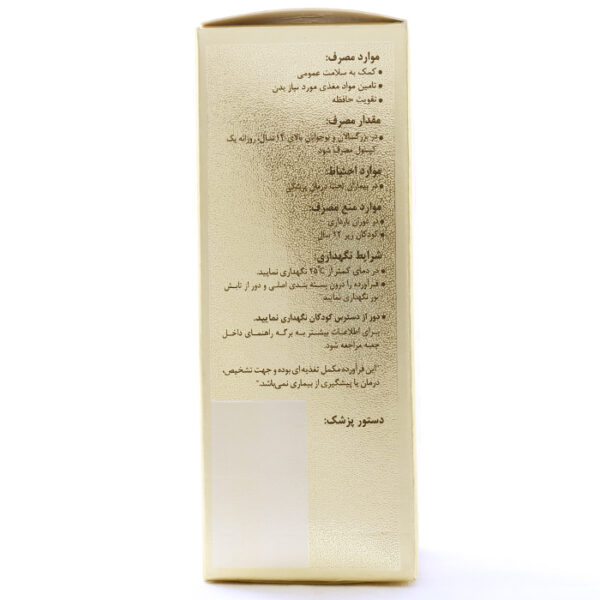 موارد مصرف:
• کمک به سلامت عمومی
• تامین مواد مغذی مورد نیاز بدن
• تقویت حافظه
مقدار مصرف:
• در بزرگسالان و نوجوانان بالای ۱۲ سال، روزانه یک
کپسول مصرف شود.
موارد احتیاط:
• در بیماران تحت درمان پزشکی
موارد منع مصرف:
• در دوران بارداری
• کودکان زیر ۱۲ سال
شرایط نگهداری:
• در دمای کمتر از ۲۵°C نگهداری نمایید.
• فرآورده را درون بسته بندی اصلی و دور از تابش
نور نگهداری نمایید.
• دور از دسترس کودکان نگهداری نمایید.
برای اطلاعات بیشتر به برگه راهنمای داخل
جعبه مراجعه شود.
"این فرآورده مکمل تغذیه ای بوده و جهت تشخیص،
درمان یا پیشگیری از بیماری نمی‌باشد."
دستور پزشک: